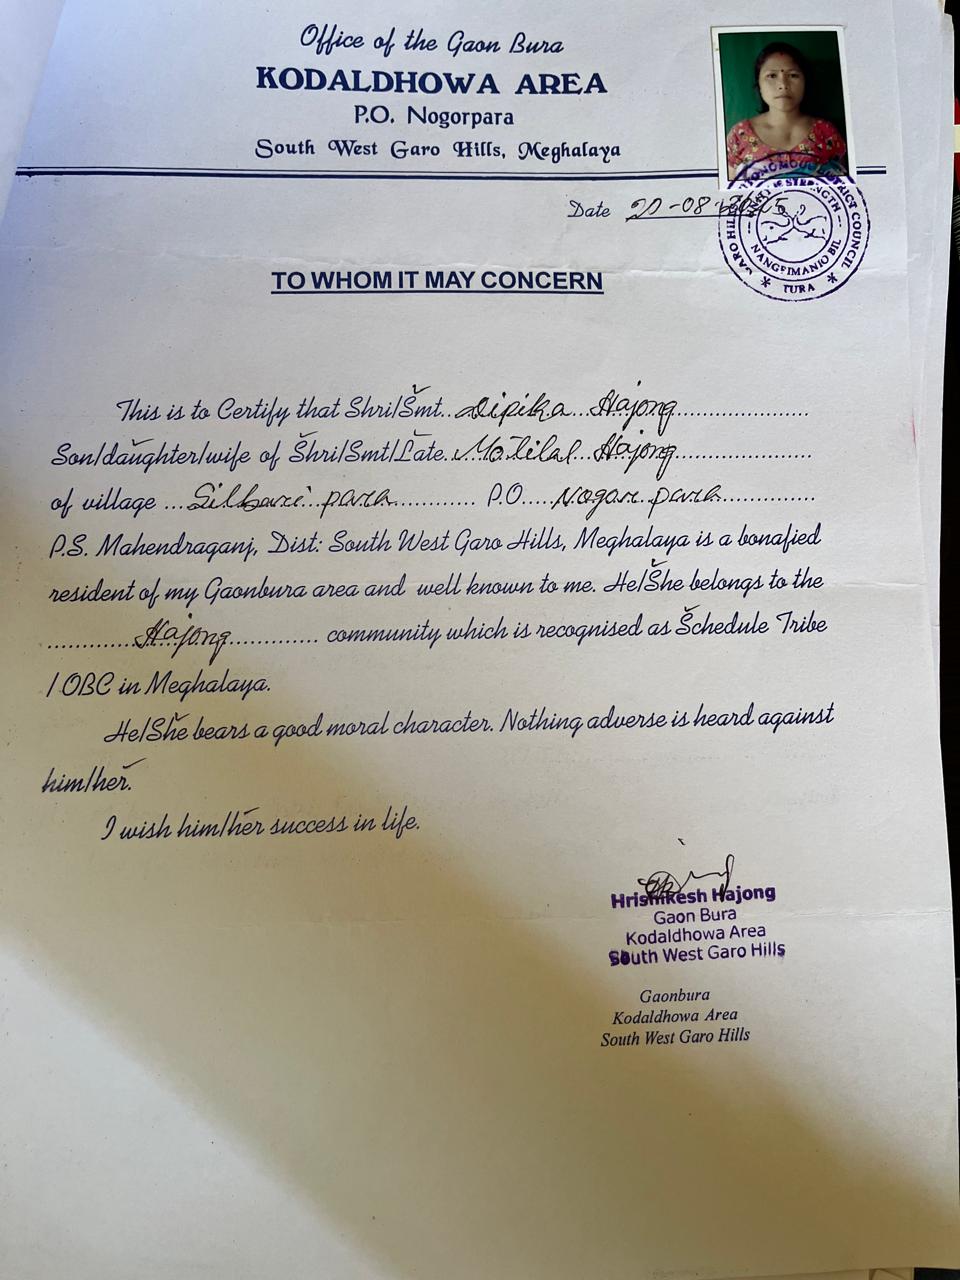 Office of the Gaon Bura
KODALDHOWA AREA
P.O. Nogorpara
South West Garo Hills, Meghalaya
Date 20-08-2025
GARO HILLS AUTONOMOUS DISTRICT COUNCIL
UNITY IS STRENGTH
NANGRIMANIO BIL
* TURA *
TO WHOM IT MAY CONCERN
This is to Certify that Shri/Smt. Dipika Hajong
Son/daughter/wife of Shri/Smt/Late. Motilal Hajong
of village Silbari para P.O. Nogor para
P.S. Mahendraganj, Dist: South West Garo Hills, Meghalaya is a bonafied
resident of my Gaonbura area and well known to me. He/She belongs to the
Hajong community which is recognised as Schedule Tribe
/ OBC in Meghalaya.
He/She bears a good moral character. Nothing adverse is heard against
him/her.
I wish him/her success in life.
Hrishikesh Hajong
Gaon Bura
Kodaldhowa Area
South West Garo Hills
Gaonbura
Kodaldhowa Area
South West Garo Hills